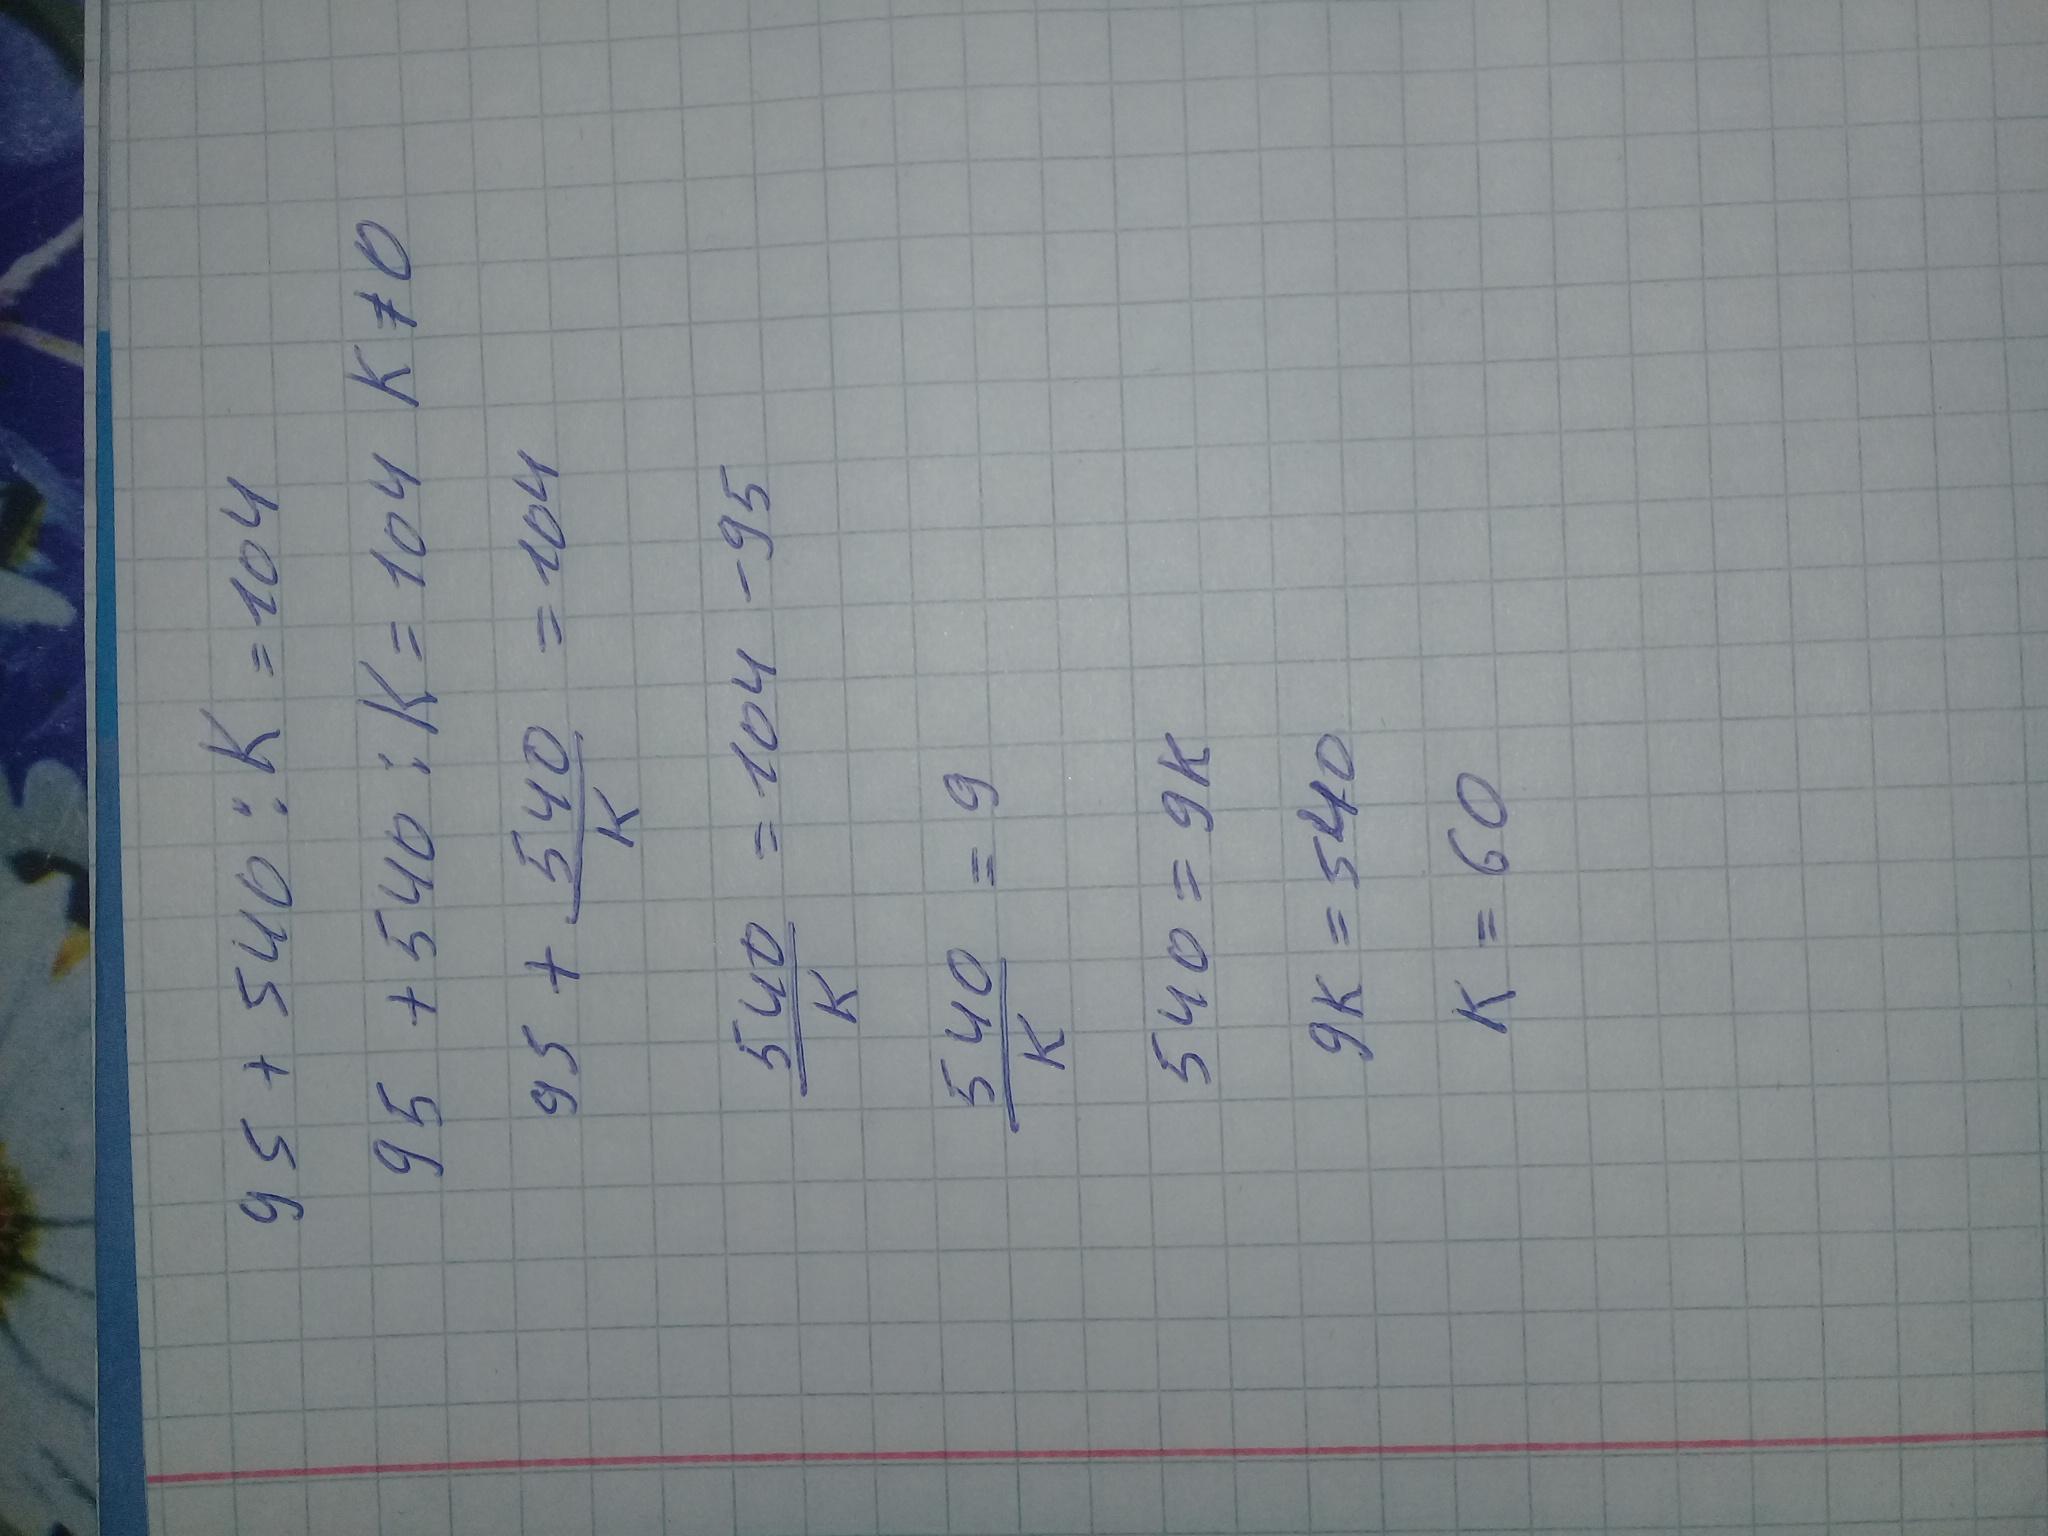 95 + 540 : K = 104
95 + 540 : K = 104 K ≠ 0
95 + 540/K = 104
540/K = 104 - 95
540/K = 9
540 = 9K
9K = 540
K = 60